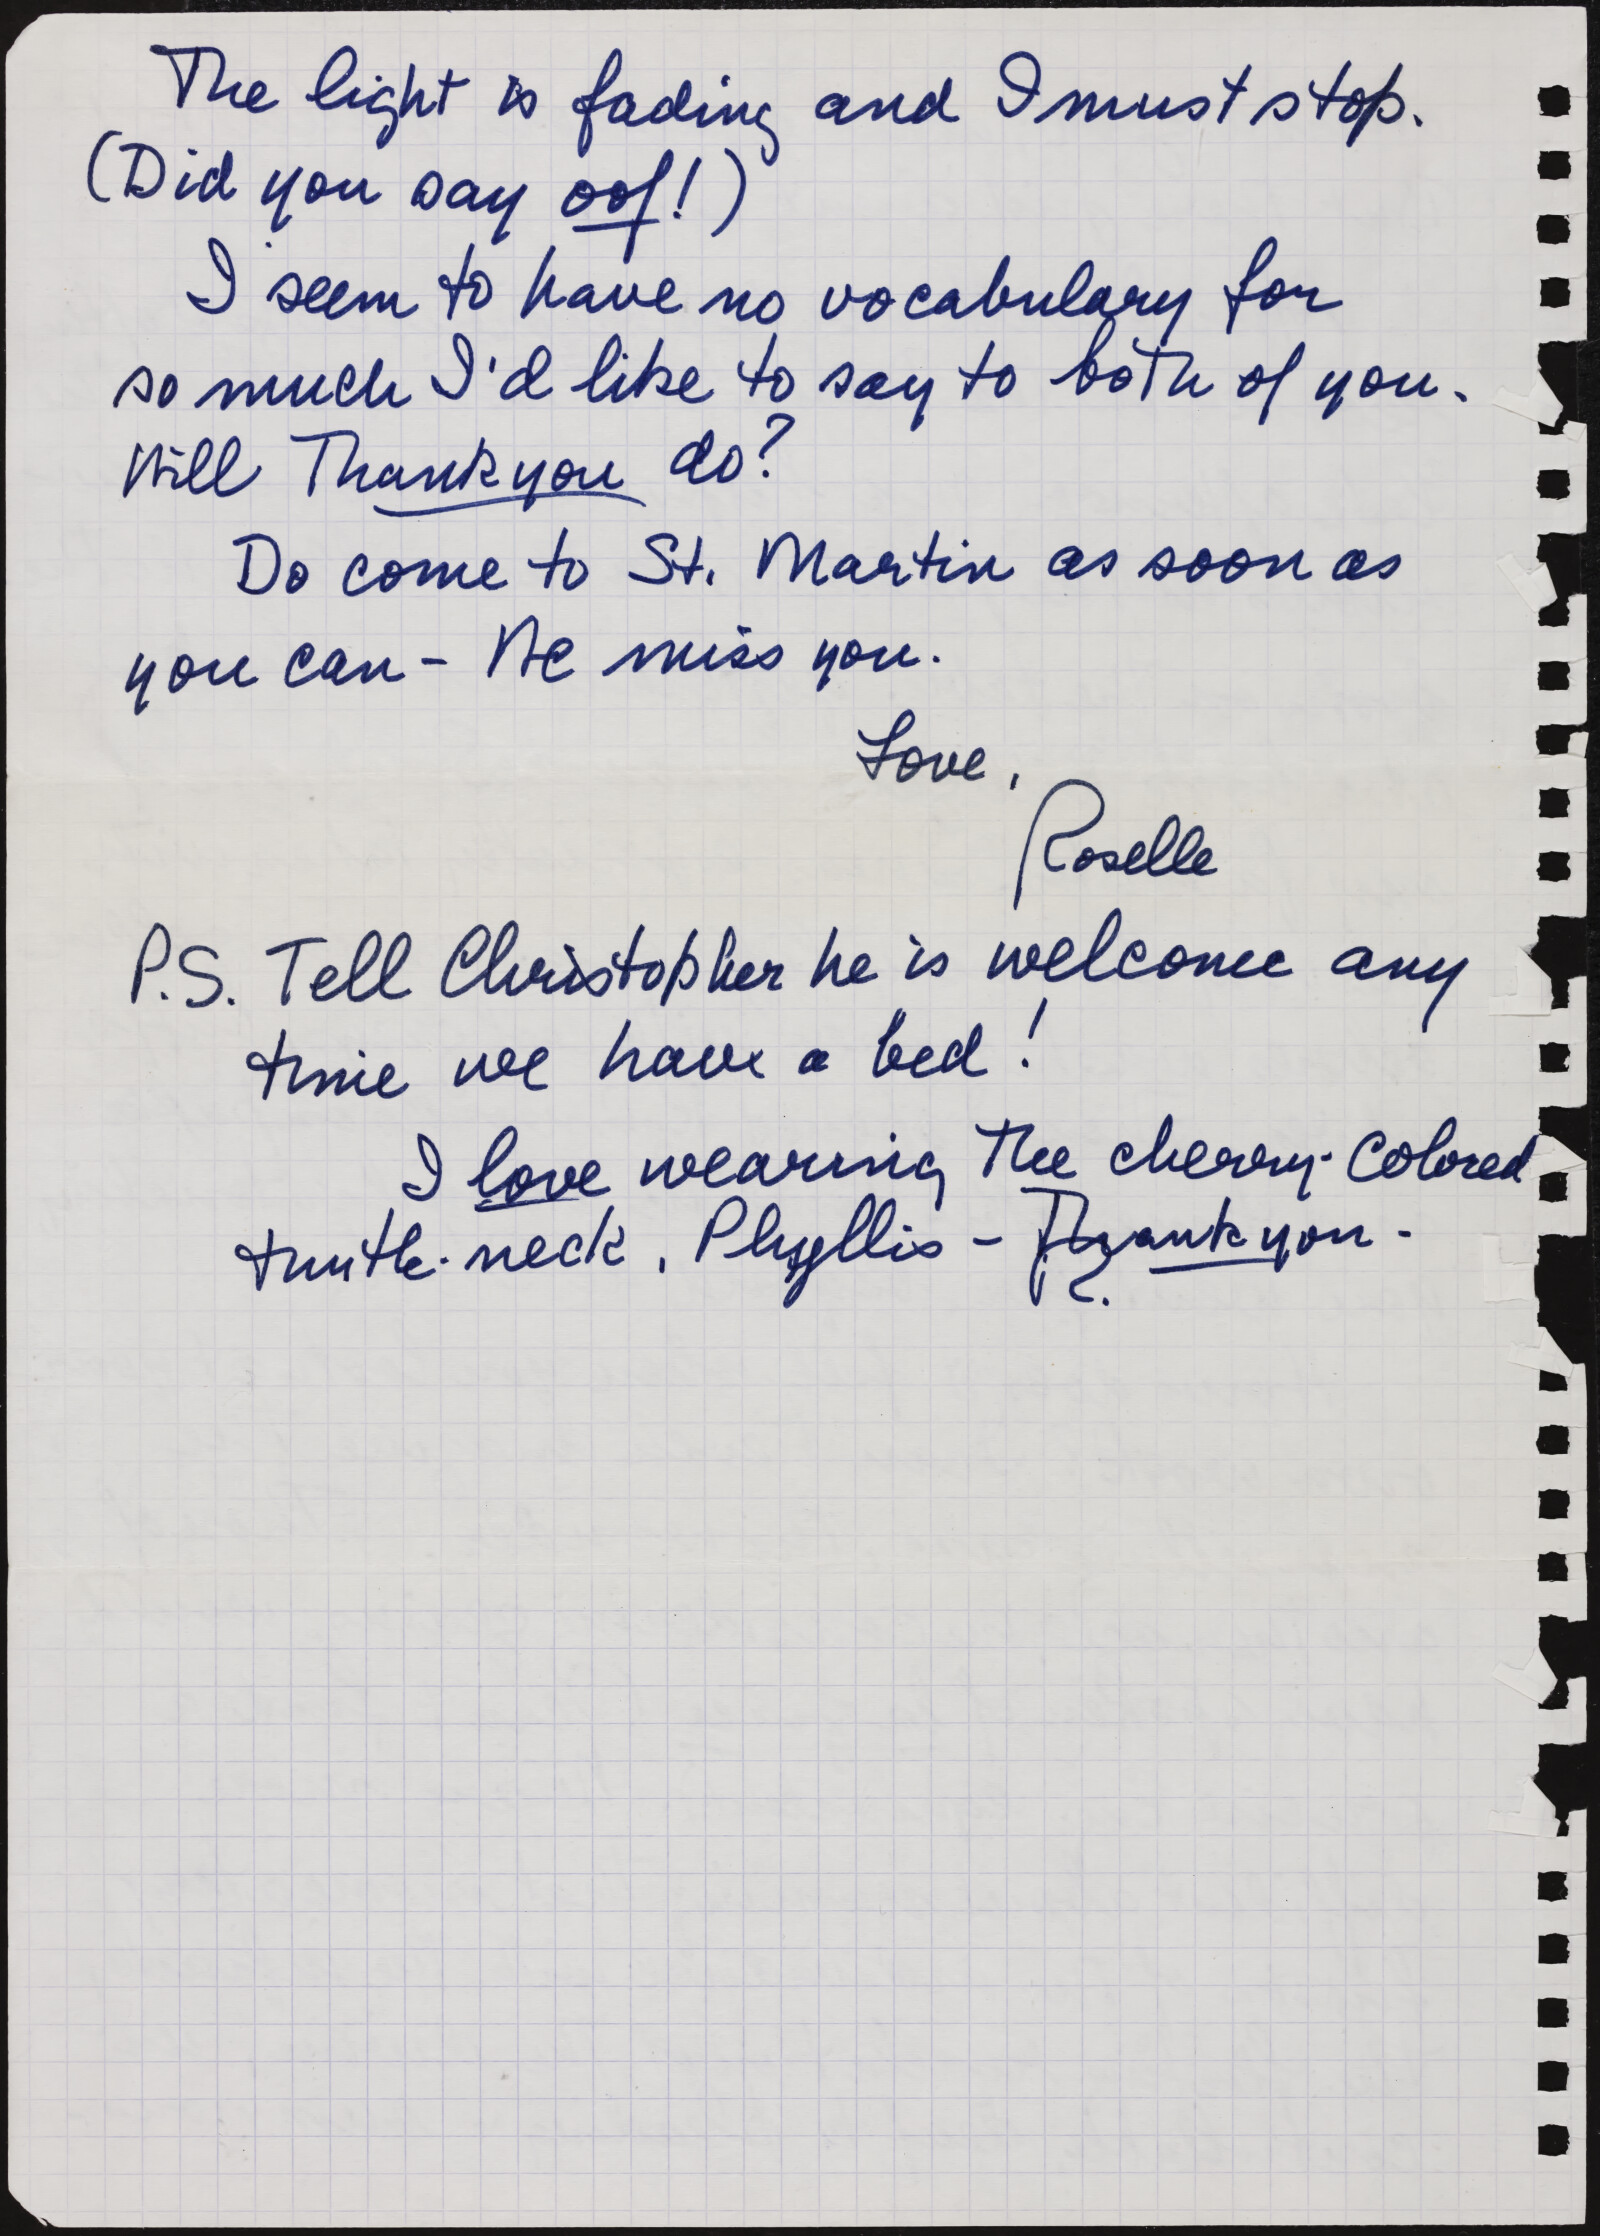 The light is fading and I must stop.
(Did you say oof!)
I seem to have no vocabulary for
so much I'd like to say to both of you.
Will Thank you do?
Do come to St. Martin as soon as
you can – We miss you.
Love,
Roselle
P.S. Tell Christopher he is welcome any
time we have a bed!
I love wearing the cherry-colored
turtle-neck, Phyllis – Thank you –
R.